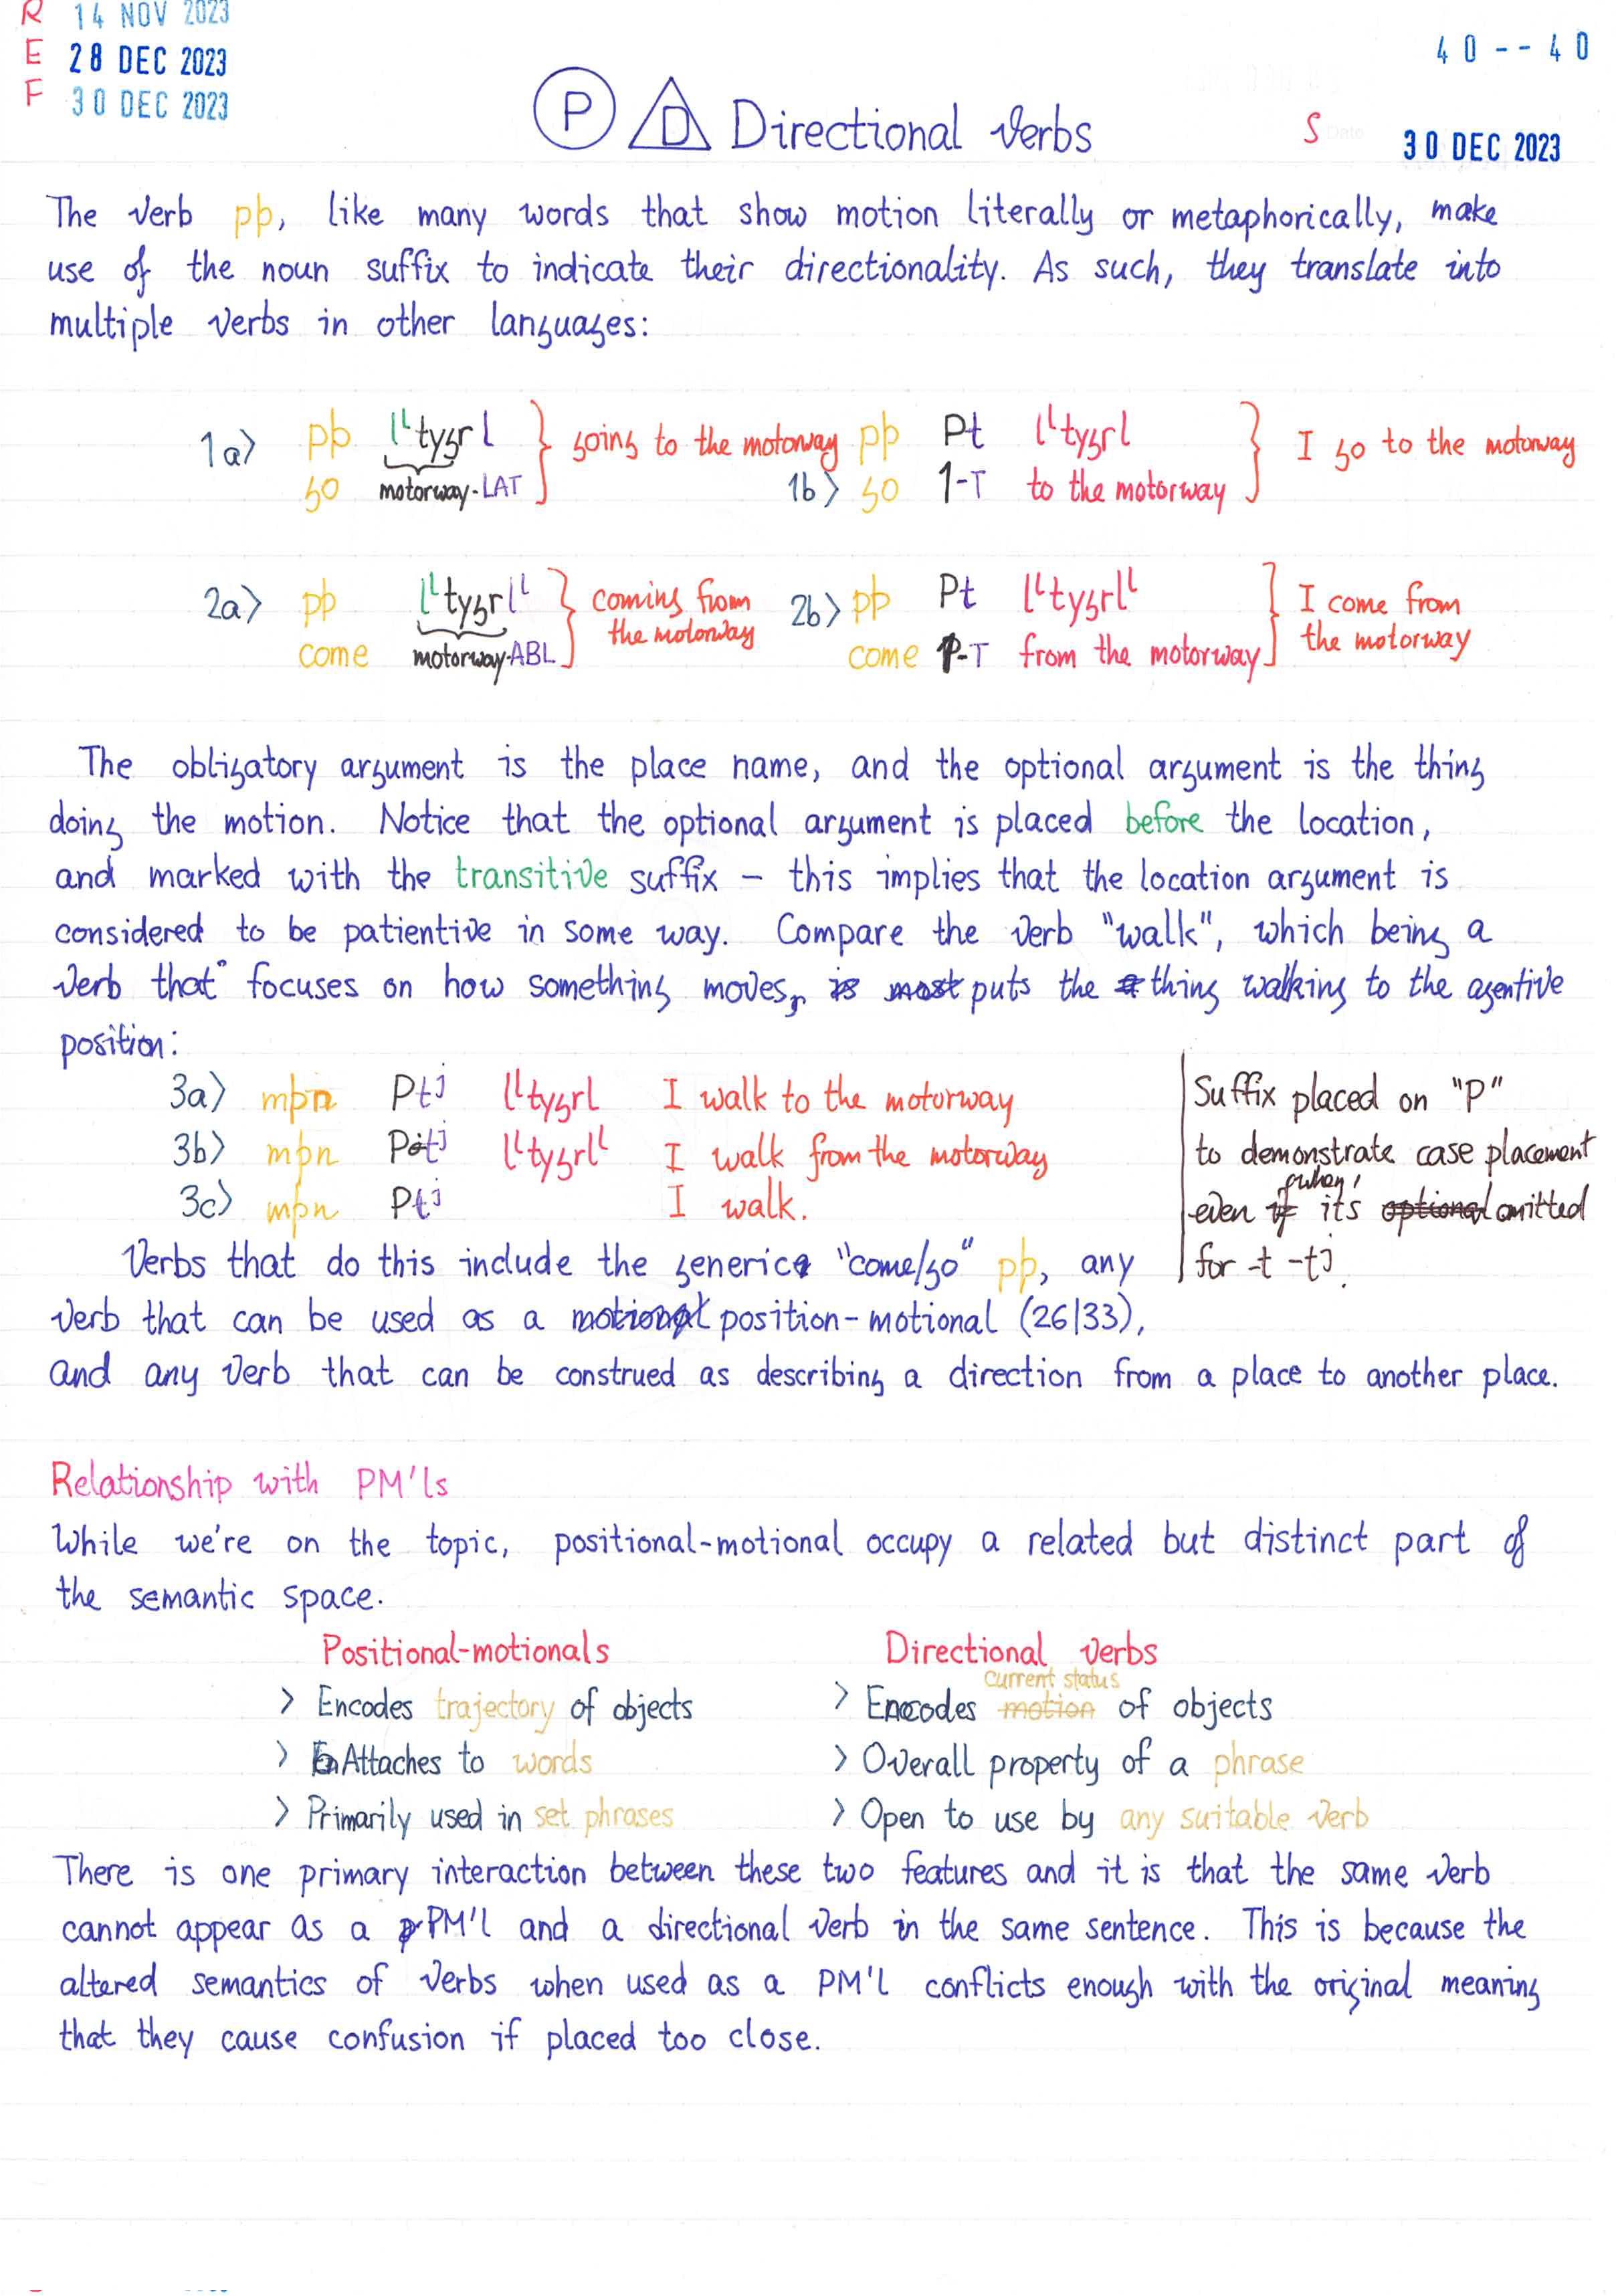 R 14 NOV 2023
E 28 DEC 2023
F 30 DEC 2023
40--40
P D Directional verbs
S 30 DEC 2023
The verb pþ, like many words that show motion literally or metaphorically, make
use of the noun suffix to indicate their directionality. As such, they translate into
multiple verbs in other languages:
1a> pþ lᴸtygrl } going to the motorway
go motorway-LAT
1b> pþ Pt lᴸtygrl } I go to the motorway
go 1-T to the motorway
2a> pþ lᴸtygrlᴸ } coming from the motorway
come motorway-ABL
2b> pþ Pt lᴸtygrlᴸ } I come from the motorway
come P-T from the motorway
The obligatory argument is the place name, and the optional argument is the thing
doing the motion. Notice that the optional argument is placed before the location,
and marked with the transitive suffix – this implies that the location argument is
considered to be patientive in some way. Compare the verb "walk", which being a
verb that focuses on how something moves, is most puts the thing walking to the agentive
position:
3a> mþn Ptʲ lᴸtygrl I walk to the motorway
3b> mþn Ptʲ lᴸtygrlᴸ I walk from the motorway
3c> mþn Ptʲ I walk.
Suffix placed on "P"
to demonstrate case placement
even if when its optional omitted
for -t -tj.
Verbs that do this include the generic "come/go" pþ, any
verb that can be used as a motional position-motional (26|33),
and any verb that can be construed as describing a direction from a place to another place.
Relationship with PM'ls
While we're on the topic, positional-motional occupy a related but distinct part of
the semantic space.
Positional-motionals
> Encodes trajectory of objects
> Attaches to words
> Primarily used in set phrases
Directional verbs
current status
> Encodes motion of objects
> Overall property of a phrase
> Open to use by any suitable verb
There is one primary interaction between these two features and it is that the same verb
cannot appear as a PM'l and a directional verb in the same sentence. This is because the
altered semantics of verbs when used as a PM'l conflicts enough with the original meaning
that they cause confusion if placed too close.